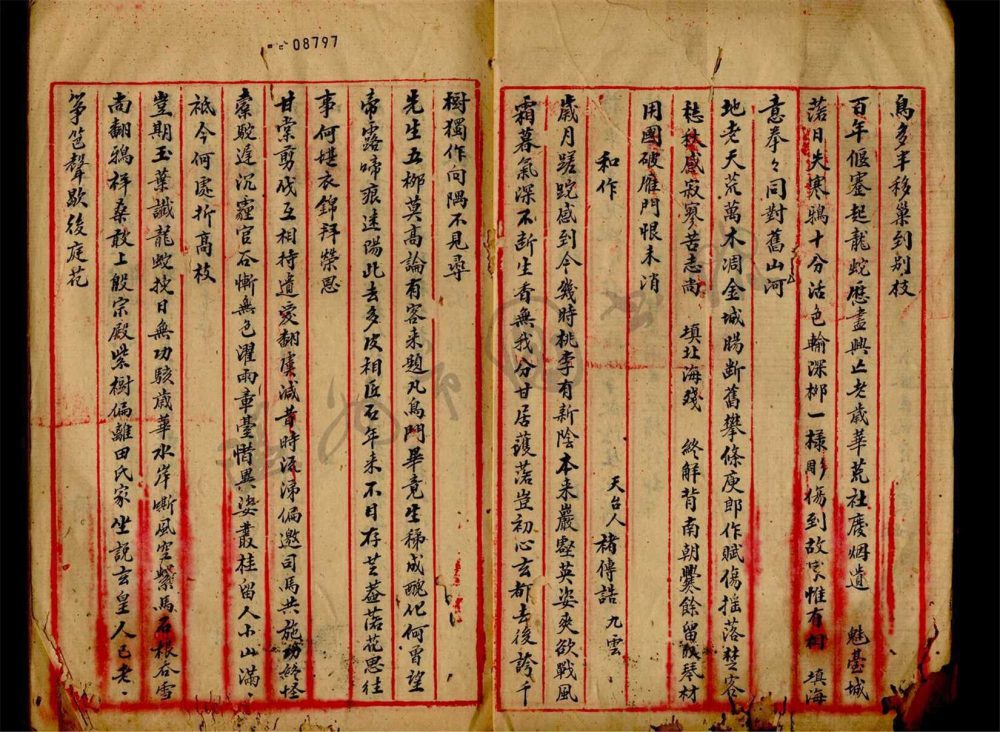 08797
鳥多半移巢到别枝
百年偃蹇起龍蛇歷盡興亡老歲華荒社廢烟遺 魅臺城
落日失寒鴉十分沽色輸深柳一様彫傷到故家惟有 填海
意拳々同對舊山河
地老天荒萬木凋金城腸斷舊攀條庾郎作賦傷摇落楚客
愁秋感寂寥苦志尚 填北海殘 終解背南朝爨餘留取琴材
用國破雁門恨未消
和作 天台人 褚傳誥 九雲
歲月蹉跎感到今幾時桃李有新陰本来巖壑英姿爽欲戰風
霜暮氣深不斷生香無我分甘居蠖落豈初心玄都去後誇千
樹獨作向隅不見尋
先生五柳莫高論有客来題凡鳥門畢竟生稊成醜化何曾望
帝露啼痕迷陽此去多皮相匠石年来不目存芝菴落花思往
事何堪衣錦拜榮恩
甘棠剪伐互相待遺愛翻虞減昔時流涕偏邀司馬共施功終怪
橐駝遲沉霾官谷慚無色濯雨章臺惜異姿叢桂留人小山滿
祗今何處折高枝
豈期玉葉讖龍蛇挍日無功駭歲華水岸嘶風空繫馬石根吞雪
尚翻鴉梓桑敢上殷宗殿柴樹偏離田氏家坐説玄皇人已老
筝笆聲歇後庭花